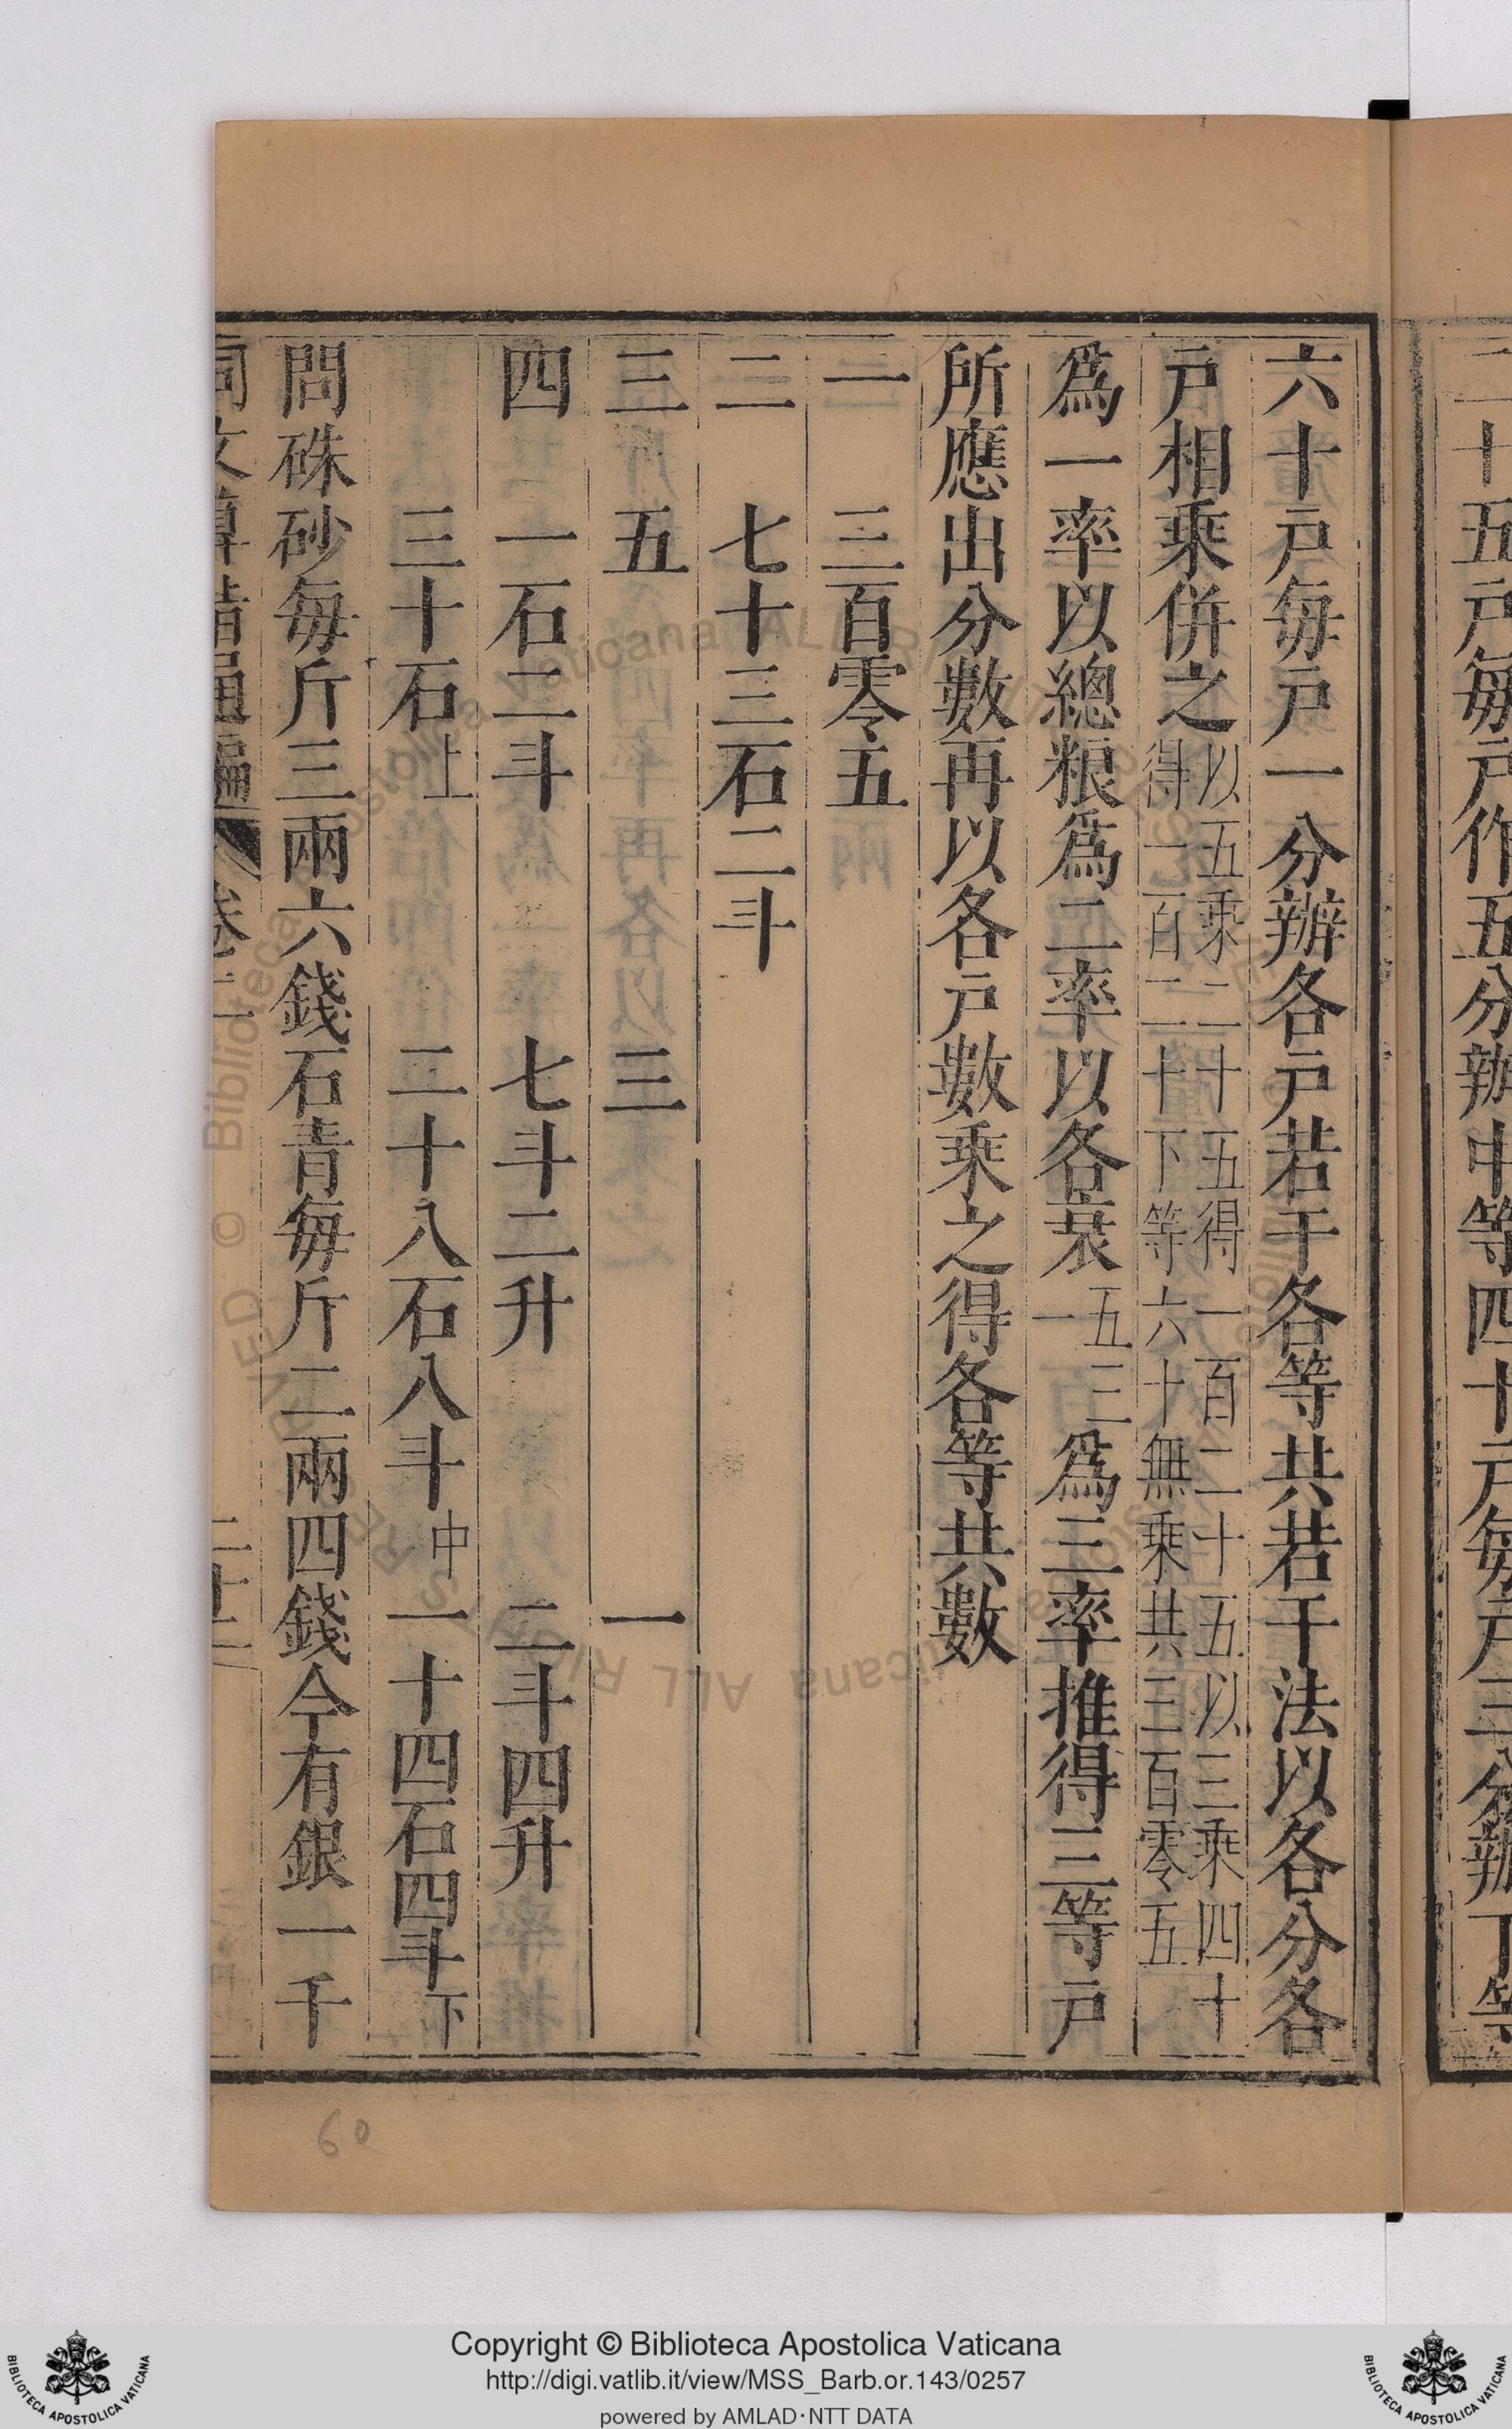 二十五戸毎戸作五分辦中等四十戸毎戸三分辦下等
六十戸毎戸一分辦各戸若干各等共若干法以各分各
戸相乘併之以五乘二十五得一百二十五以三乘四十
得一百二十下等六十無乘共三百零五
爲一率以總粮爲二率以各衰五三
一爲三率推得三等戸
所應出分數再以各戸數乘之得各等共數
一 三百零五
二 七十三石二斗
三 五 三 一
四 一石二斗 七斗二升 二斗四升
三十石上 二十八石八斗中 一十四石四斗下
問硃砂毎斤三兩六錢石青毎斤二兩四錢今有銀一千
同文算指通編 卷二 二十二
60
Copyright © Biblioteca Apostolica Vaticana
http://digi.vatlib.it/view/MSS_Barb.or.143/0257
powered by AMLAD·NTT DATA
BIBLIOTECA APOSTOLICA VATICANA
BIBLIOTECA APOSTOLICA VATICANA